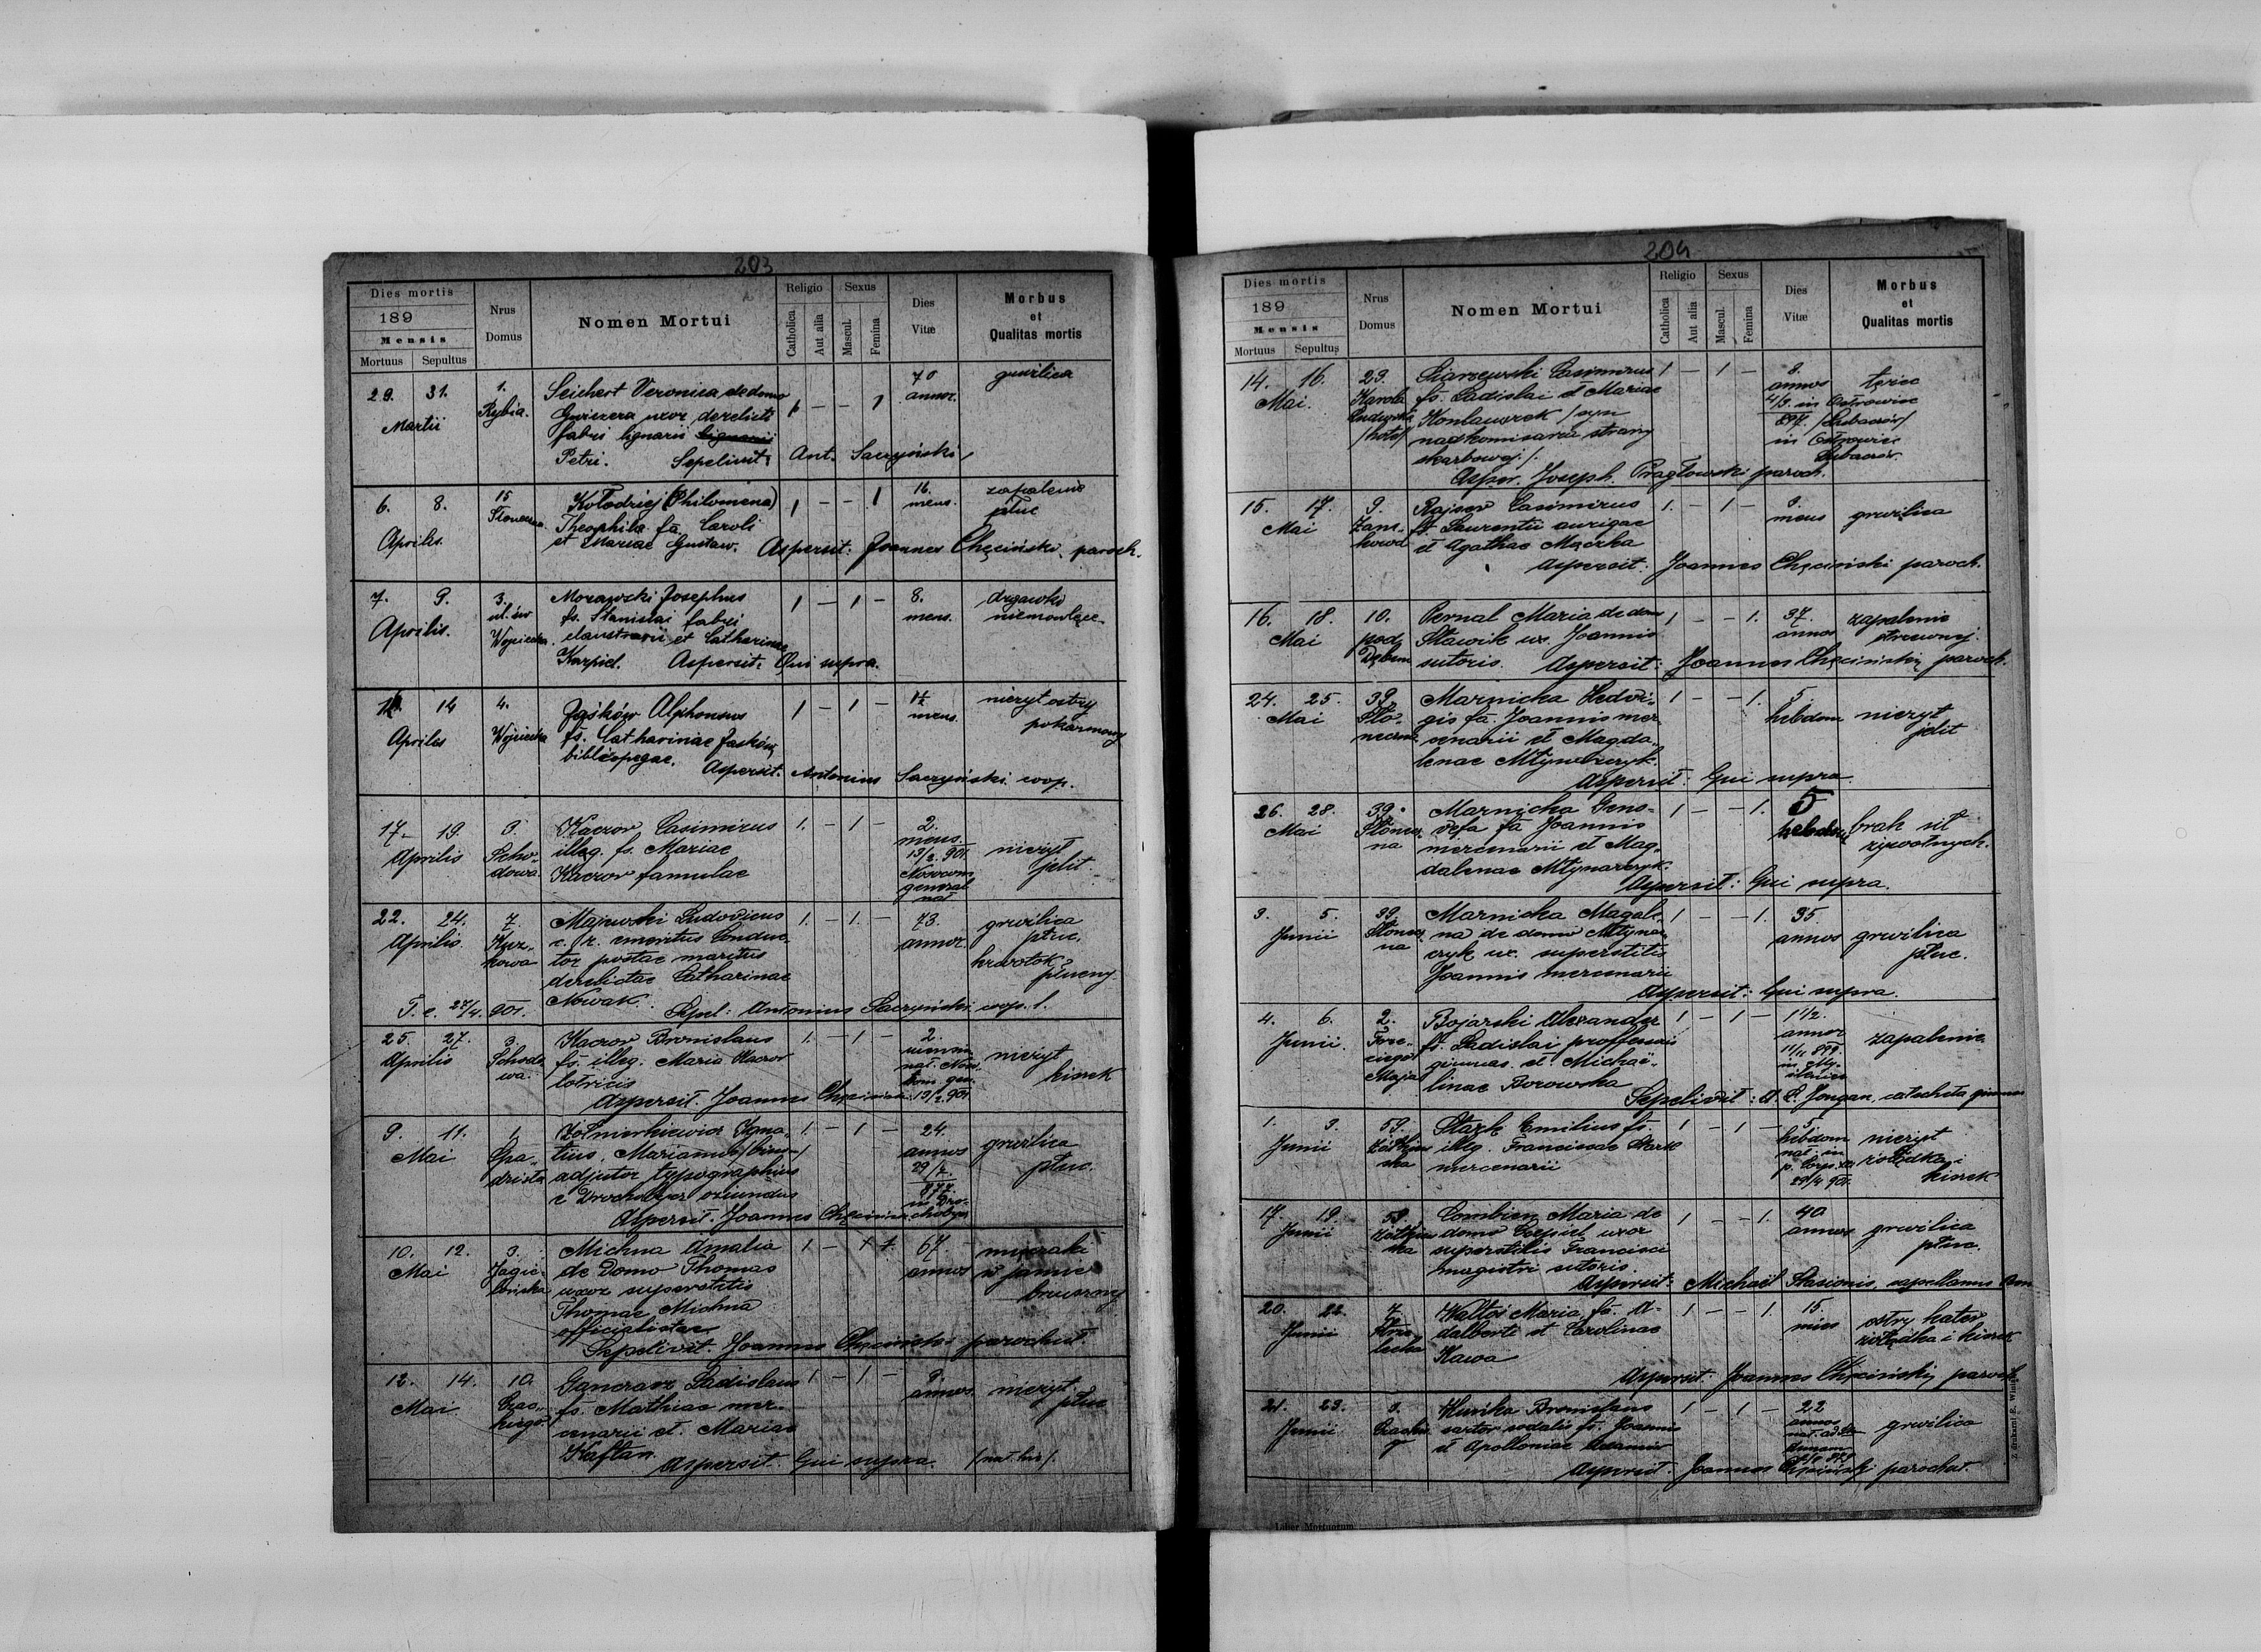 203
Dies mortis
189
Mensis
Mortuus Sepultus
Nrus Domus
Nomen Mortui
Religio
Catholica
Aut alia
Sexus
Mascul.
Femina
Dies Vitæ
Morbus et Qualitas mortis
29. 31. 1. Seichert Veronica de domo 1 — — 1 70 gruzlica
Martii Rybia. uxor derelicti annor.
fabri lignarii
Petri. Sepelivit: Ant. Saczyński
6. 8. 15 Kołodziej (Philomena) 1 — — 1 16. zapalenie
Aprilis. Theophila fa Caroli mens. płuc
et Mariae Gustaw. Aspersit: Joannes Chęciński, paroch.
7. 9. 3. Morawski Josephus 1 — 1 — 8. drgawki
Aprilis. ul. św fs. Stanislai fabri mens. niemowlęce
Wojciecha. claustrarii et Catharinae
Karpiel. Aspersit: Qui supra.
14 4. Jaśków Alphonsus 1 — 1 — nieżyt ostry
Aprilis Wojciecha fs. Catharinae Jaśków, mens. pokarmowy
bibliopegae. Aspersit. Antonius Saczyński coop.
17. 19. 3. Kaczor Casimirus 1. — 1 — 2.
Aprilis Scho- illeg. fs. Mariae mens. nieżyt
dowa Kaczor famulae 13/2 901. jelit.
nat
22. 24. 7. Majewski Ludovicus 1. — 1. — 73. gruzlica
Aprilis. c. r. emeritus Conduc- annor. płuc,
kowa tor postae maritus krwotok
derelictae Catharinae płucny
T. e. 27/4. 901. Nowak. Sepel: Antonius Saczyński coop. l.
25. 27. 3. Kaczor Bronislaus 1. — 1 — 2.
Aprilis Schodo fs. illeg. Maria Kaczor nieżyt
wa. lotricis kiszek
Aspersit. Joannes Chęciński 13/2 901
9. 11. 1. Żołnierkiewicz Igna- 1. — 1 — 24. gruzlica
Mai tius, Marianus annos płuc.
adjutor typographius 29/7.
e Drohobycz oriundus 877.
Aspersit. Joannes Chęciński
10. 12. 3. Michna Amalia 1 — 67.
Mai Jagie- de Domo Thomas annos w jamie
lońska uxor superstitis brzusznej
Thomae Michna
officialistae
Sepelivit. Joannes Chęciński parochus.
12. 14. 10. Gancrarz Ladislaus 1 — 1 — 9. nieżyt
Mai Czac- fs. Mathiae mer- annos. płuc
kiego cenarii et. Mariae
Kaftan. Aspersit. Qui supra. /nat. hic/.
204
Dies mortis
189
Mensis
Mortuus Sepultus
Nrus Domus
Nomen Mortui
Religio
Catholica
Aut alia
Sexus
Mascul.
Femina
Dies Vitæ
Morbus et Qualitas mortis
14. 16. 29. Casimirus 1 — 1 — 8.
Mai. Karola fs. Ladislai et Mariae annos tężec
Ludwika /syn 4/3. in Ostrowiec
/hotel/ nadkomisarza straży 897. /Lubaczów/
skarbowej/. in Ostrowiec Lubaczów.
Asper. Joseph. Prągłowski paroch.
15. 17. 9. Rajser Casimirus 1. — 1 — 9.
Mai Zam- fs. Laurentii aurigae mens gruzlica
kowa et Agathae Mączka
Aspersit: Joannes Chęciński paroch.
16. 18. 10. Pernal Maria de dom 1 — — 1. 37. zapalenie
Mai pod Stawik ux. Joannis annos otrzewnej
Dębem sutoris. Aspersit: Joannes Chęciński paroch.
24. 25. 39. Marnicka Hedvi- 1 — — 1. 5.
Mai Sło- gis fa. Joannis mer- hebdom nieżyt
neczna cenarii et Magda- jelit
lenae Młynarczyk.
Aspersit: Qui supra
26. 28. 39. Marnicka Geno- 1 — — 1. 5
Mai Słonecz- vefa fa Joannis hebdom brak sił
na mercenarii et Mag- żywotnych.
dalenae Młynarczyk.
Aspersit: Qui supra.
3. 5. 39. Marnicka Magale- 1 — — 1. 35.
Junii Słonecz- na de domo Młynar- annos gruzlica
na czyk ux. superstitis płuc.
Joannis mercenarii
Aspersit: Qui supra.
4. 6. 2. Bojarski Alexander 1 — 1 — 1 1/2.
Junii. Trze- fs. Ladislai professoris annor zapalenie
ciego gimnas. et Michaë- 11/11 899.
Maja linae Borowska
Sepelivit: catecheta gimnas
1. 3. 59. Stark Emilius fs. 1 — 1 — 5.
Junii illeg. Franciscae Stark hebdom nieżyt
mercenarii nat. in żołądka i
29/4 901. kiszek
17. 19. 59. Maria de 1 — — 1. 40
Junii domo uxor annos gruzlica
superstitis Francisci płuc.
magistri sutoris.
Aspersit: Michaël Stasionis, capellanus
20. 22. 7. Waltoś Maria fa. A- 1 — — 1. 15.
Junii Strze- dalberti et Carolinae mens ostry katar
lecka Kawa żołądka i kiszek
Aspersit: Joannes Chęciński, paroch.
21. 23. 3. Bronislaus 1 — 1 — 22
Junii sartor sodalis fs. Joannis annos gruzlica
et Apolloniae
Aspersit: Joannes Chęciński parochus.
Liber Mortuorum
Z drukarni E. Winiarza